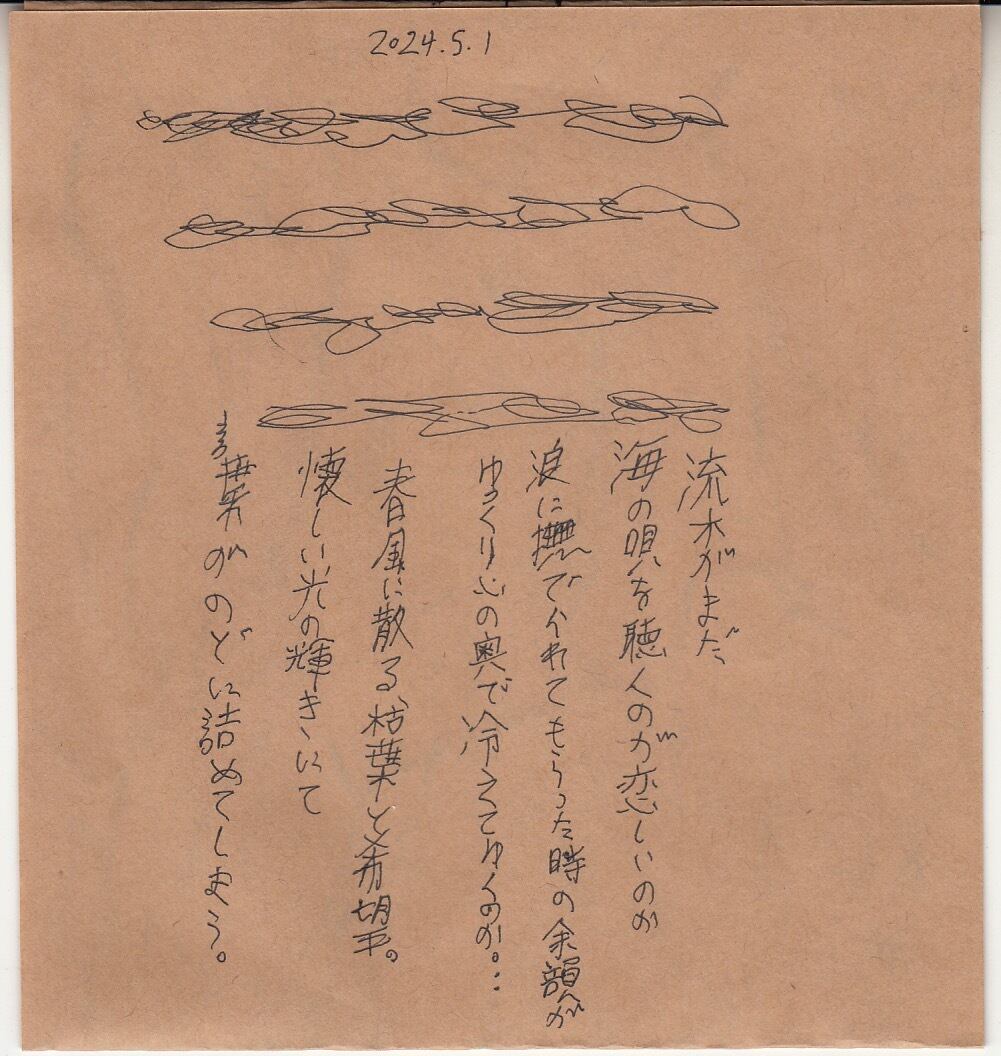 2024.5.1
流木がまだ
海の唄を聴くのが恋しいのか
浪に撫でくれてもらった時の余韻が
ゆっくり心の奥で冷えてゆくのか。..
春風に散る、枯葉と希望。
懐しい光の輝きにて
言葉がのどに詰めてしまう。